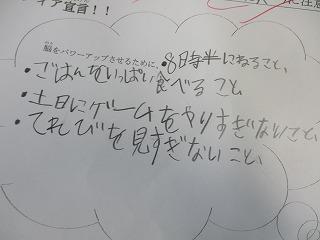 ィア宣言！！
に注意
脳をパワーアップさせるために、・8日時半にねること、
・ごはんをいっぱい食べること、
・土日にゲームをやりすぎないこと、
・てれびを見すぎないこと、